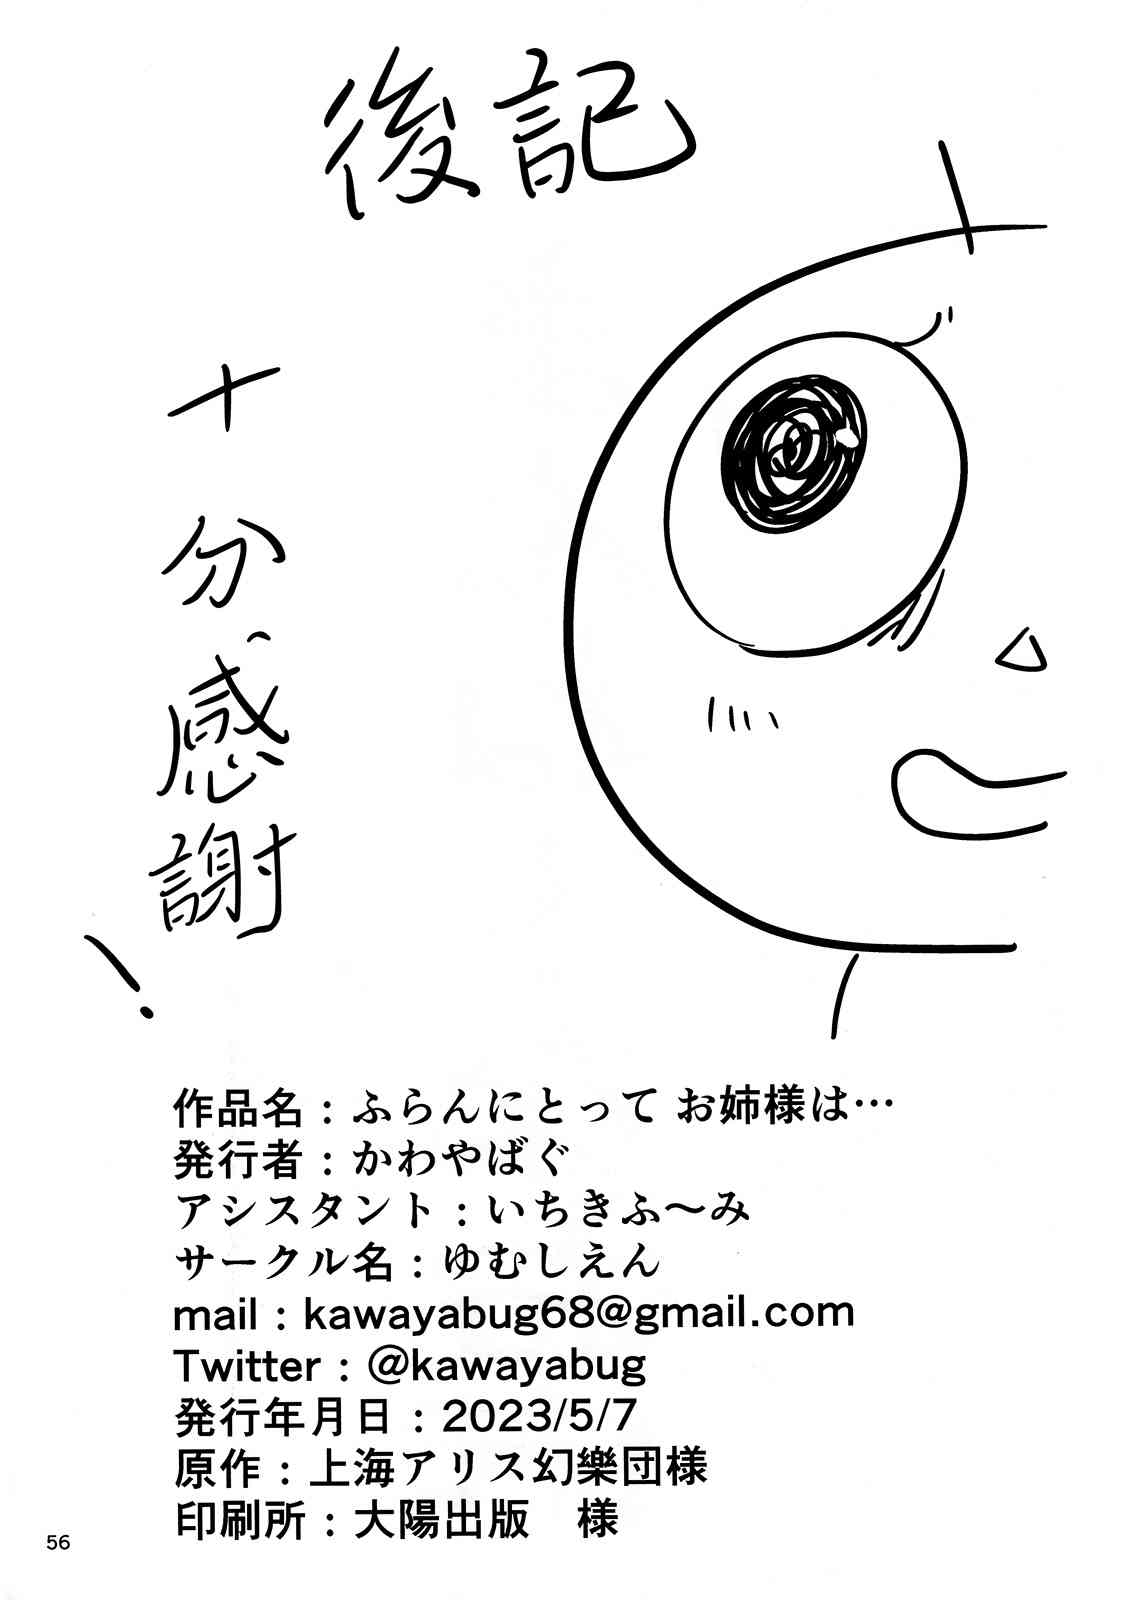 後記
十分、感謝!
作品名：ふらんにとって お姉様は…
発行者：かわやばぐ
アシスタント：いちきふ〜み
サークル名：ゆむしえん
mail：kawayabug68@gmail.com
Twitter：@kawayabug
発行年月日：2023/5/7
原作：上海アリス幻樂団様
印刷所：大陽出版　様
56